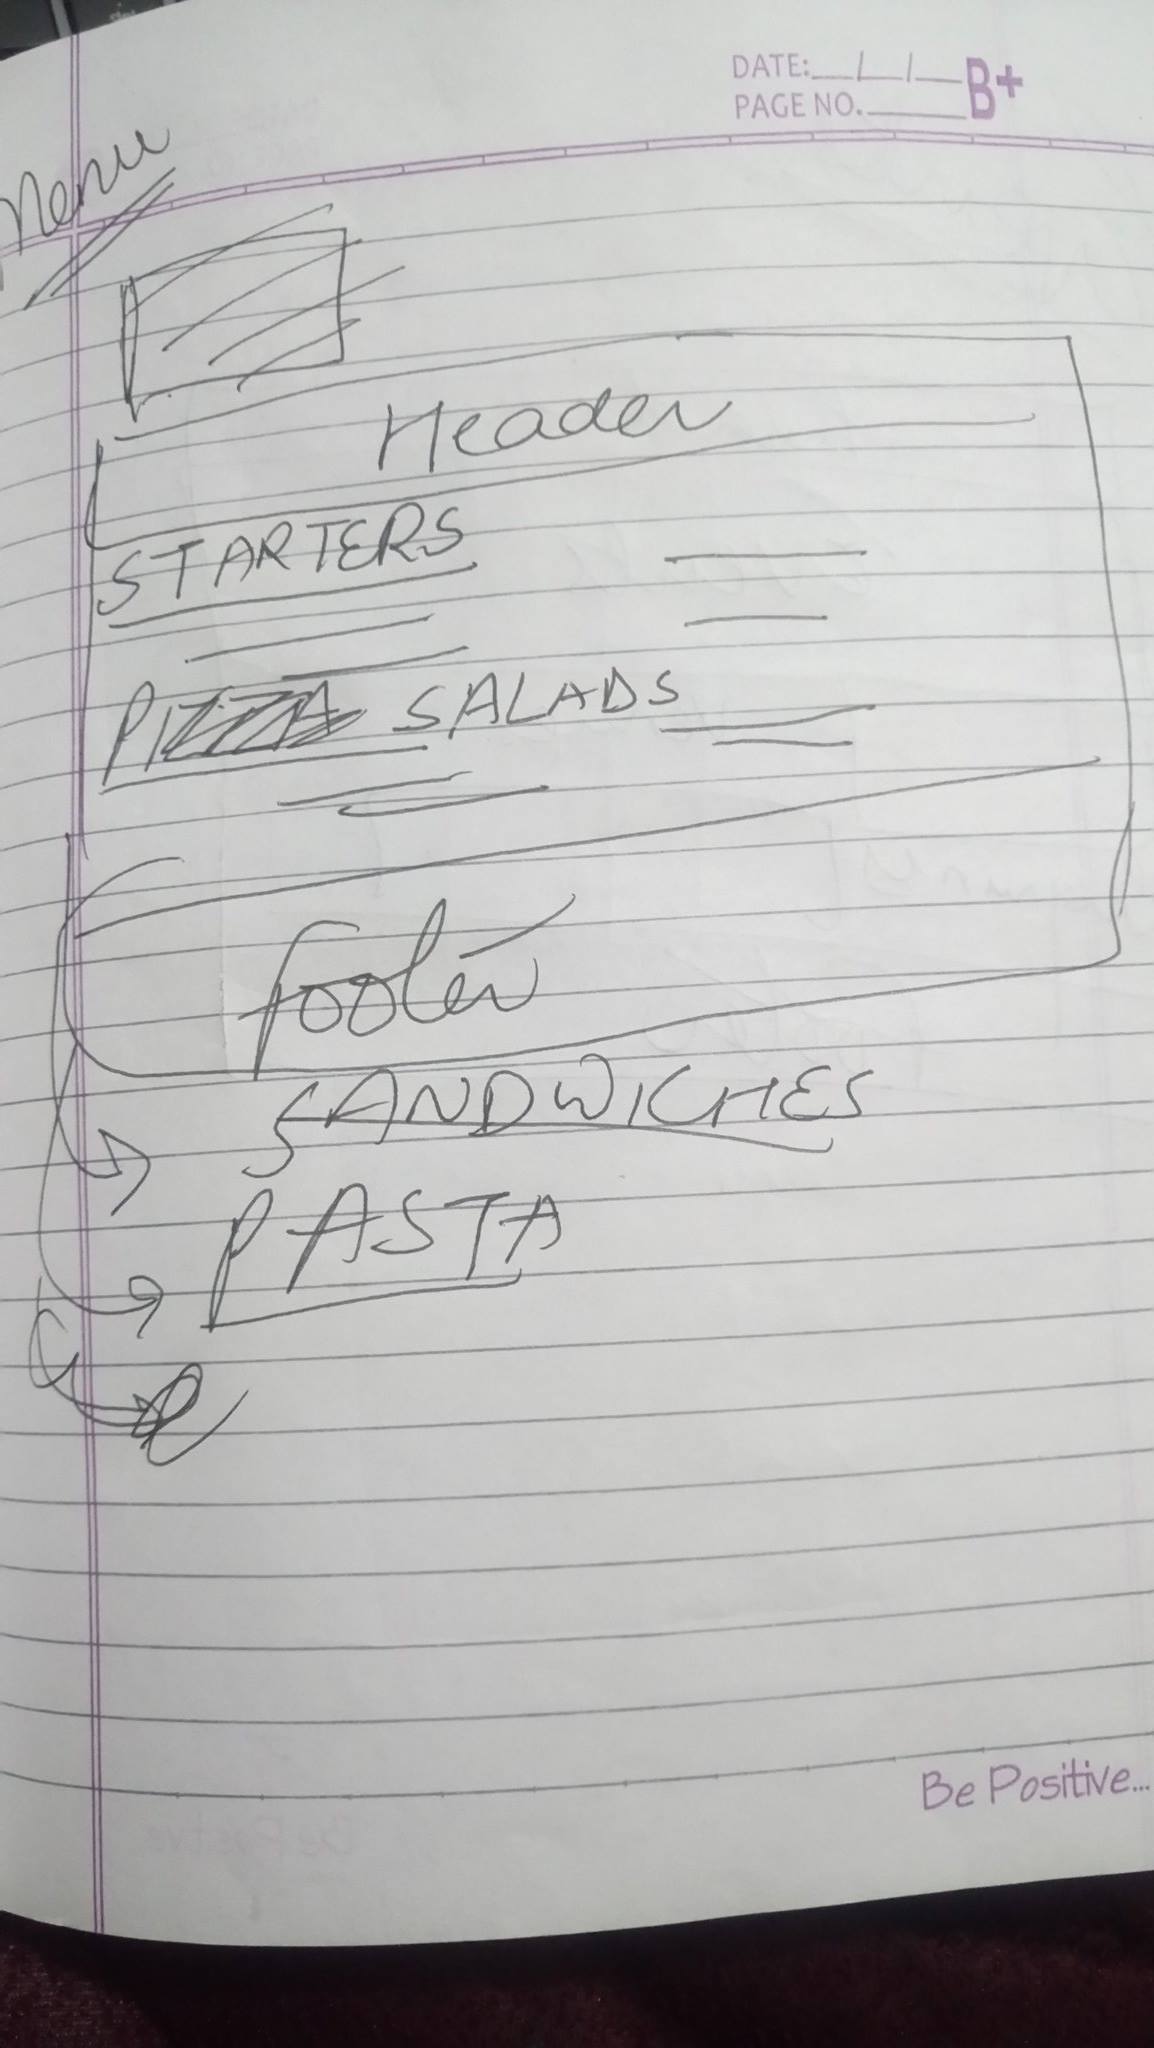 DATE:__/__/__ B+
PAGE NO.
Menu
Header
STARTERS
PIZZA SALADS
footer
SANDWICHES
PASTA
Be Positive...